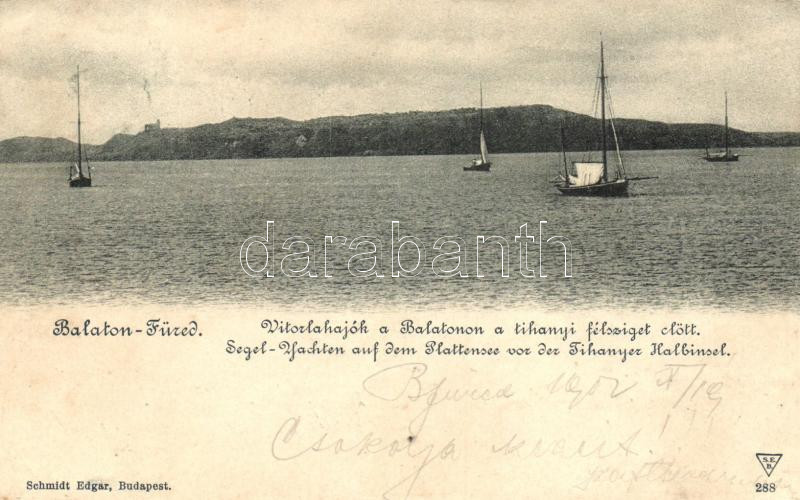 darabanth
Balaton-Füred. Vitorlahajók a Balatonon a tihanyi félsziget előtt.
Segel-Yachten auf dem Plattensee vor der Tihanyer Halbinsel.
Bfüred 1902
Csókolja
Schmidt Edgar, Budapest.
S.E.
B.
288